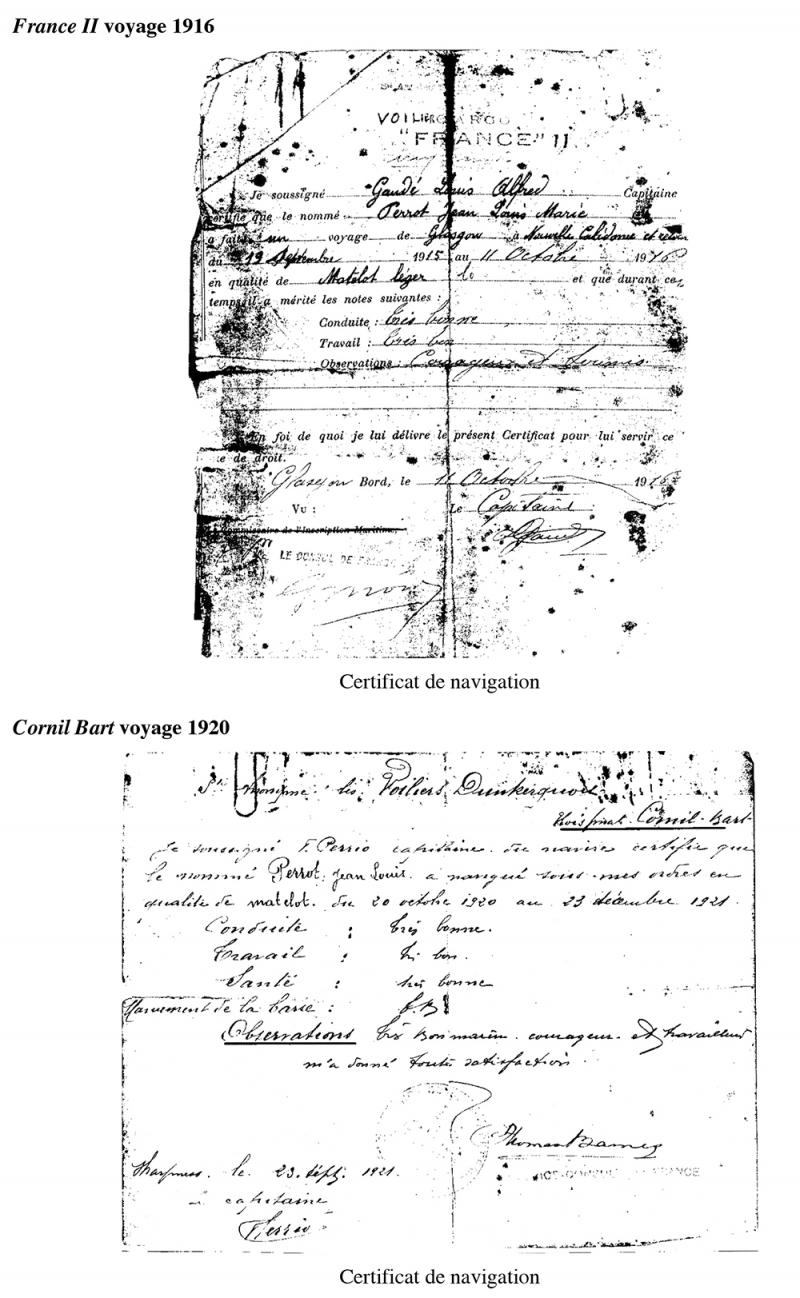 France II voyage 1916
VOILIER
"FRANCE" II
Je soussigné Gaudé Louis Alfred Capitaine
certifie que le nommé Perrot Jean Louis Marie
a fait un voyage de Glasgow à Nouvelle Calédonie et retour
du 19 Septembre 1915 au 11 Octobre 1916
en qualité de Matelot léger et que durant ce
temps il a mérité les notes suivantes :
Conduite : très bonne
Travail : très bon
Observations : Courageux et soumis
En foi de quoi je lui délivre le présent Certificat pour lui servir ce
e de droit.
Glasgow Bord, le 11 Octobre 1916
Vu : Le Capitaine
Commissaire de l'Inscription Maritime
LE CONSUL DE FRANCE
Certificat de navigation
Cornil Bart voyage 1920
Sté Anonyme les Voiliers Dunkerquois
trois-mât Cornil-Bart
Je soussigné F. Perrio capitaine du navire certifie que
le nommé Perrot Jean Louis a navigué sous mes ordres en
qualité de matelot. du 20 octobre 1920 au 23 décembre 1921.
Conduite : très bonne.
Travail : très bon.
Santé : très bonne
de la barre : t.B
Observations très bon marin, courageux et travailleur
m'a donné toute satisfaction
Thomas
Sharpness. le 23. sept. 1921.
VICE-CONSUL FRANCE
capitaine
Perrio
Certificat de navigation